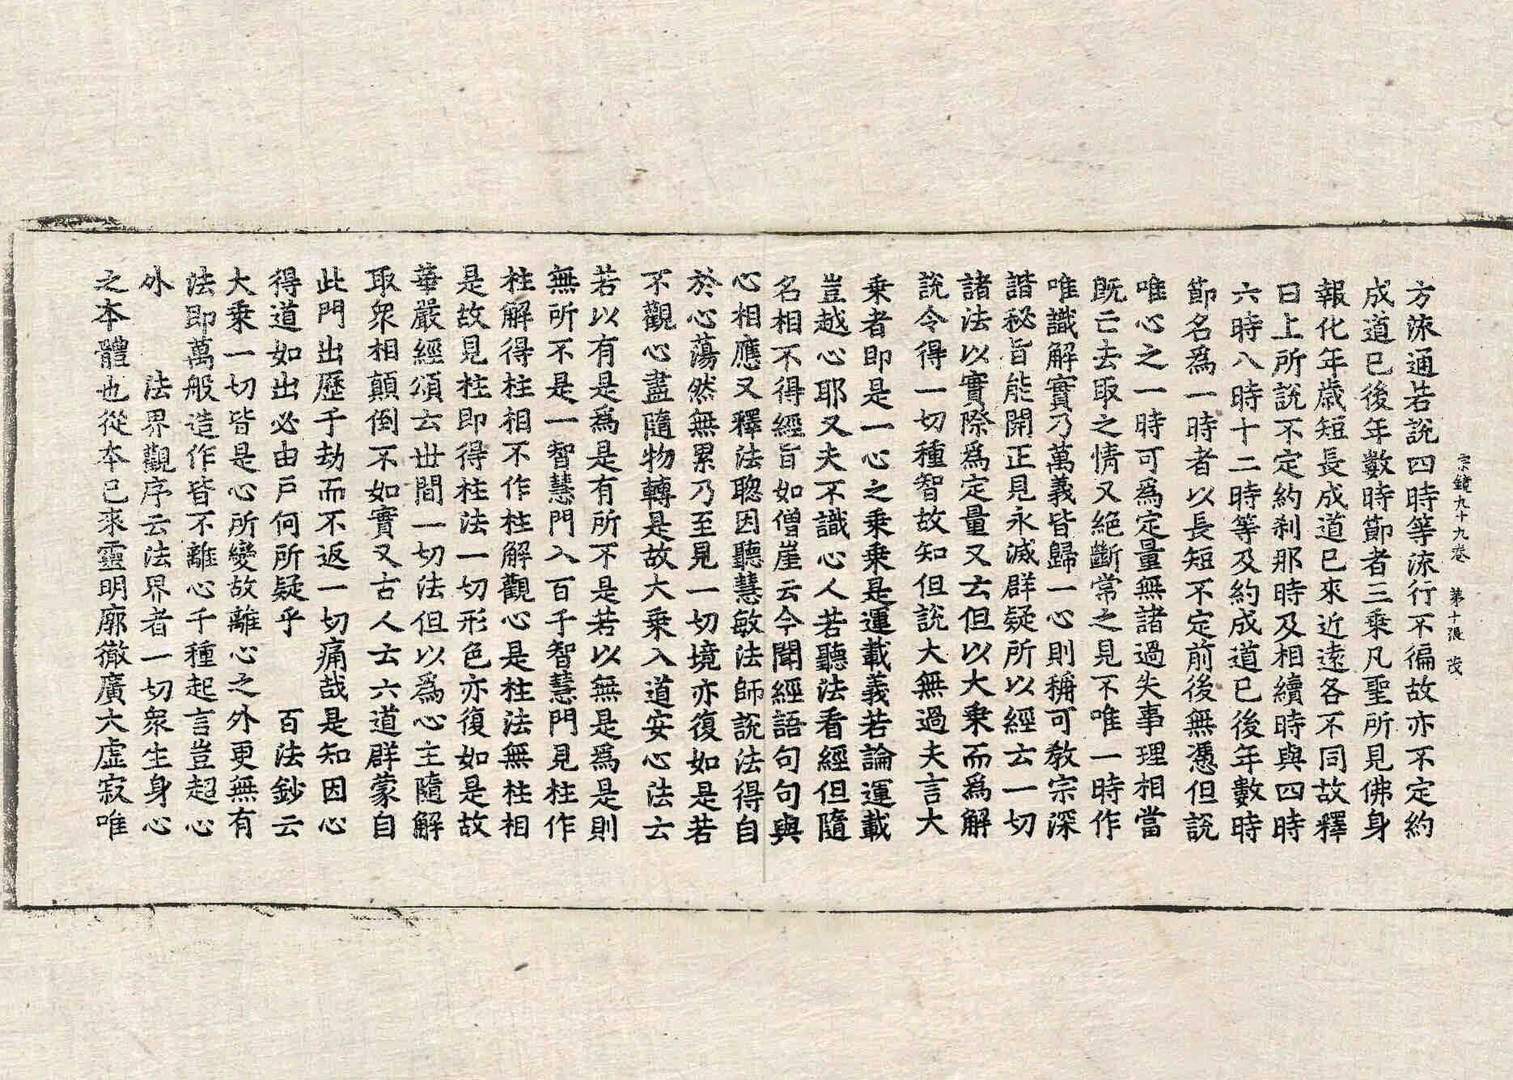 宗鏡九十九卷　第十張　茂
方流通若說四時等流行不徧故亦不定約
成道已後年數時節者三乘凡聖所見佛身
報化年歲短長成道已來近遠各不同故釋
曰上所說不定約刹那時及相續時與四時
六時八時十二時等及約成道已後年數時
節名爲一時者以長短不定前後無憑但說
唯心之一時可爲定量無諸過失事理相當
旣亡去取之情又絕斷常之見不唯一時作
唯識解實乃萬義皆歸一心則稱可敎宗深
諧秘旨能開正見永滅群疑所以經云一切
諸法以實際爲定量又云但以大乘而爲解
說令得一切種智故知但說大無過夫言大
乘者即是一心之乘乘是運載義若論運載
豈越心耶又夫不識心人若聽法看經但隨
名相不得經旨如僧崖云今聞經語句句與
心相應又釋法聰因聽慧敏法師說法得自
於心蕩然無累乃至見一切境亦復如是若
不觀心盡隨物轉是故大乘入道安心法云
若以有是爲是有所不是若以無是爲是則
無所不是一智慧門入百千智慧門見柱作
柱解得柱相不作柱解觀心是柱法無柱相
是故見柱即得柱法一切形色亦復如是故
華嚴經頌云世間一切法但以爲心主隨解
取衆相顛倒不如實又古人云六道群蒙自
此門出歷千劫而不返一切痛哉是知因心
得道如出必由戶何所疑乎　　百法鈔云
大乘一切皆是心所變故離心之外更無有
法即萬般造作皆不離心千種起言豈超心
外　　法界觀序云法界者一切衆生身心
之本體也從本已來靈明廓徹廣大虛寂唯